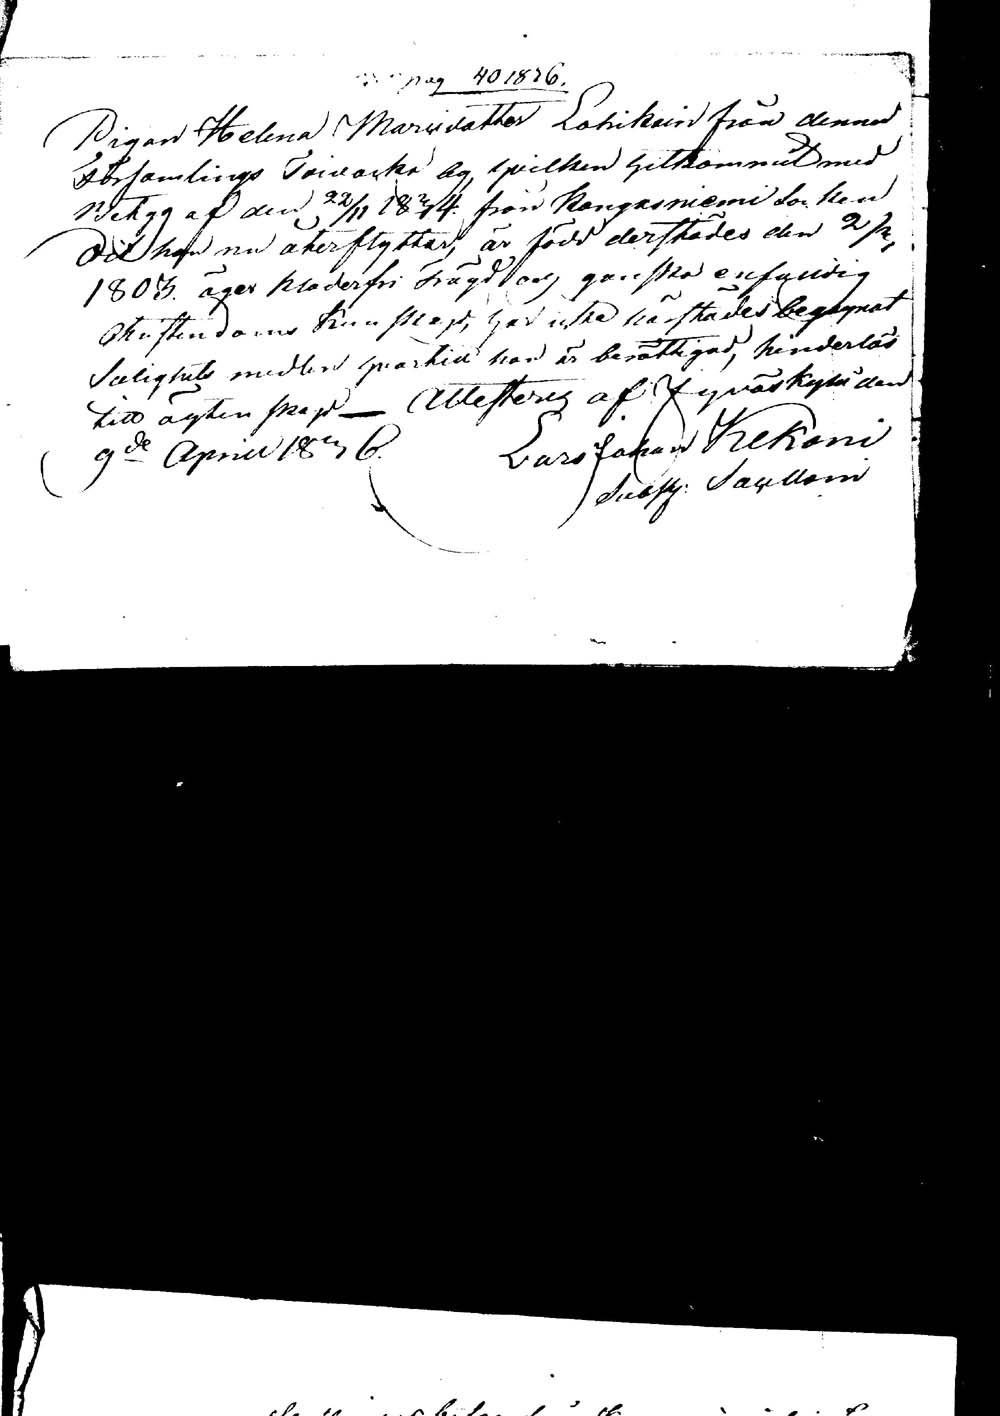 pag 40 1826.
Pigan Helena Marixdotter Lohikain från denne
Församlings Toiwacka by, hvilken hitkommit med
Betyg af den 22/11 1824. från Kangasniemi Socken
dit hon nu återflyttar, är född derstädes den 2/
1803. äger klanderfri frägd och ganska enfaldig
Christendoms Kunskap, har icke härstädes begagnat
Salighets medlen hvartill hon är berättigad, hinderlös
till ägtenskap — Attesteras af Jyväskylä den
9de April 1826.
Lars Johan Kekoni